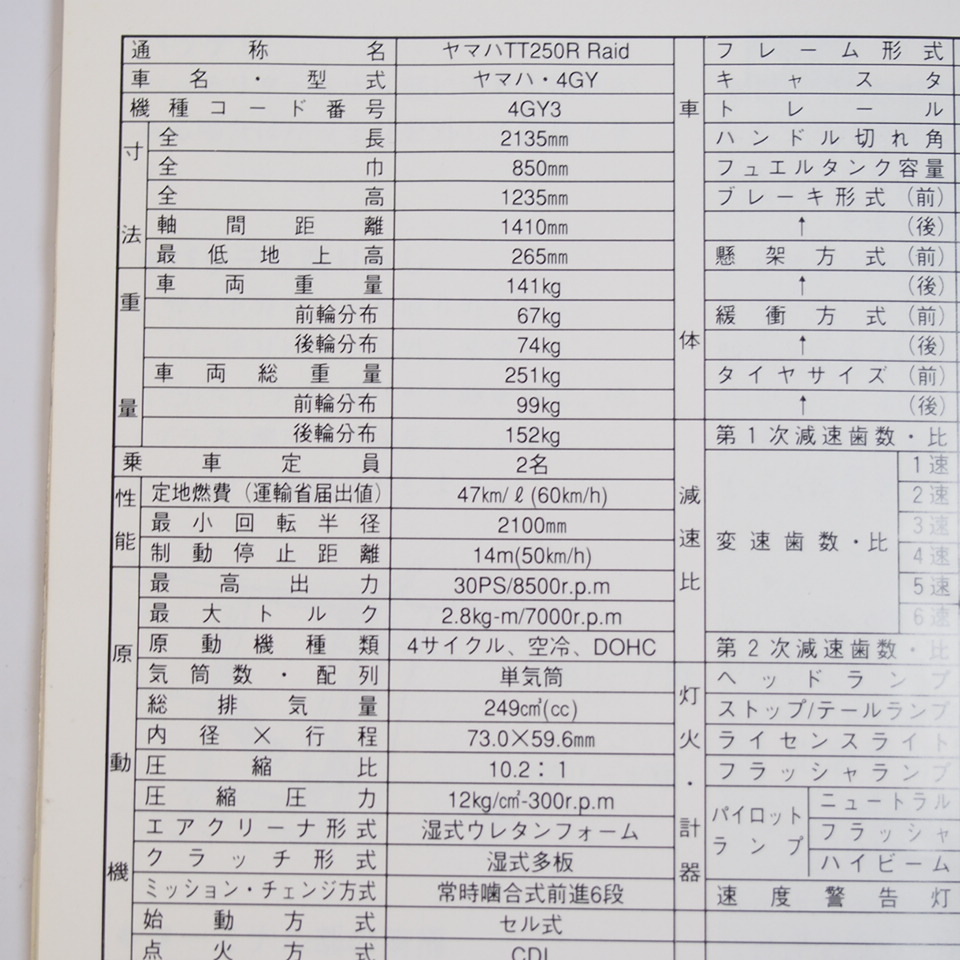 通称名 ヤマハTT250R Raid
車名・型式 ヤマハ・4GY
機種コード番号 4GY3
寸法
全長 2135mm
全巾 850mm
全高 1235mm
軸間距離 1410mm
最低地上高 265mm
重量
車両重量 141kg
前輪分布 67kg
後輪分布 74kg
車両総重量 251kg
前輪分布 99kg
後輪分布 152kg
乗車定員 2名
性能
定地燃費(運輸省届出値) 47km/ℓ(60km/h)
最小回転半径 2100mm
制動停止距離 14m(50km/h)
原動機
最高出力 30PS/8500r.p.m
最大トルク 2.8kg-m/7000r.p.m
原動機種類 4サイクル、空冷、DOHC
気筒数・配列 単気筒
総排気量 249c㎥(cc)
内径×行程 73.0×59.6mm
圧縮比 10.2:1
圧縮圧力 12kg/c㎡-300r.p.m
エアクリーナ形式 湿式ウレタンフォーム
クラッチ形式 湿式多板
ミッション・チェンジ方式 常時噛合式前進6段
始動方式 セル式
点火方式 CDI
車体
フレーム形式
キャスタ
トレール
ハンドル切れ角
フュエルタンク容量
ブレーキ形式(前)
↑(後)
懸架方式(前)
↑(後)
緩衝方式(前)
↑(後)
タイヤサイズ(前)
↑(後)
減速比
第1次減速歯数・比
変速歯数・比
1速
2速
3速
4速
5速
6速
第2次減速歯数・比
灯火・計器
ヘッドランプ
ストップ/テールランプ
ライセンスライト
フラッシャランプ
パイロットランプ
ニュートラル
フラッシャ
ハイビーム
速度警告灯